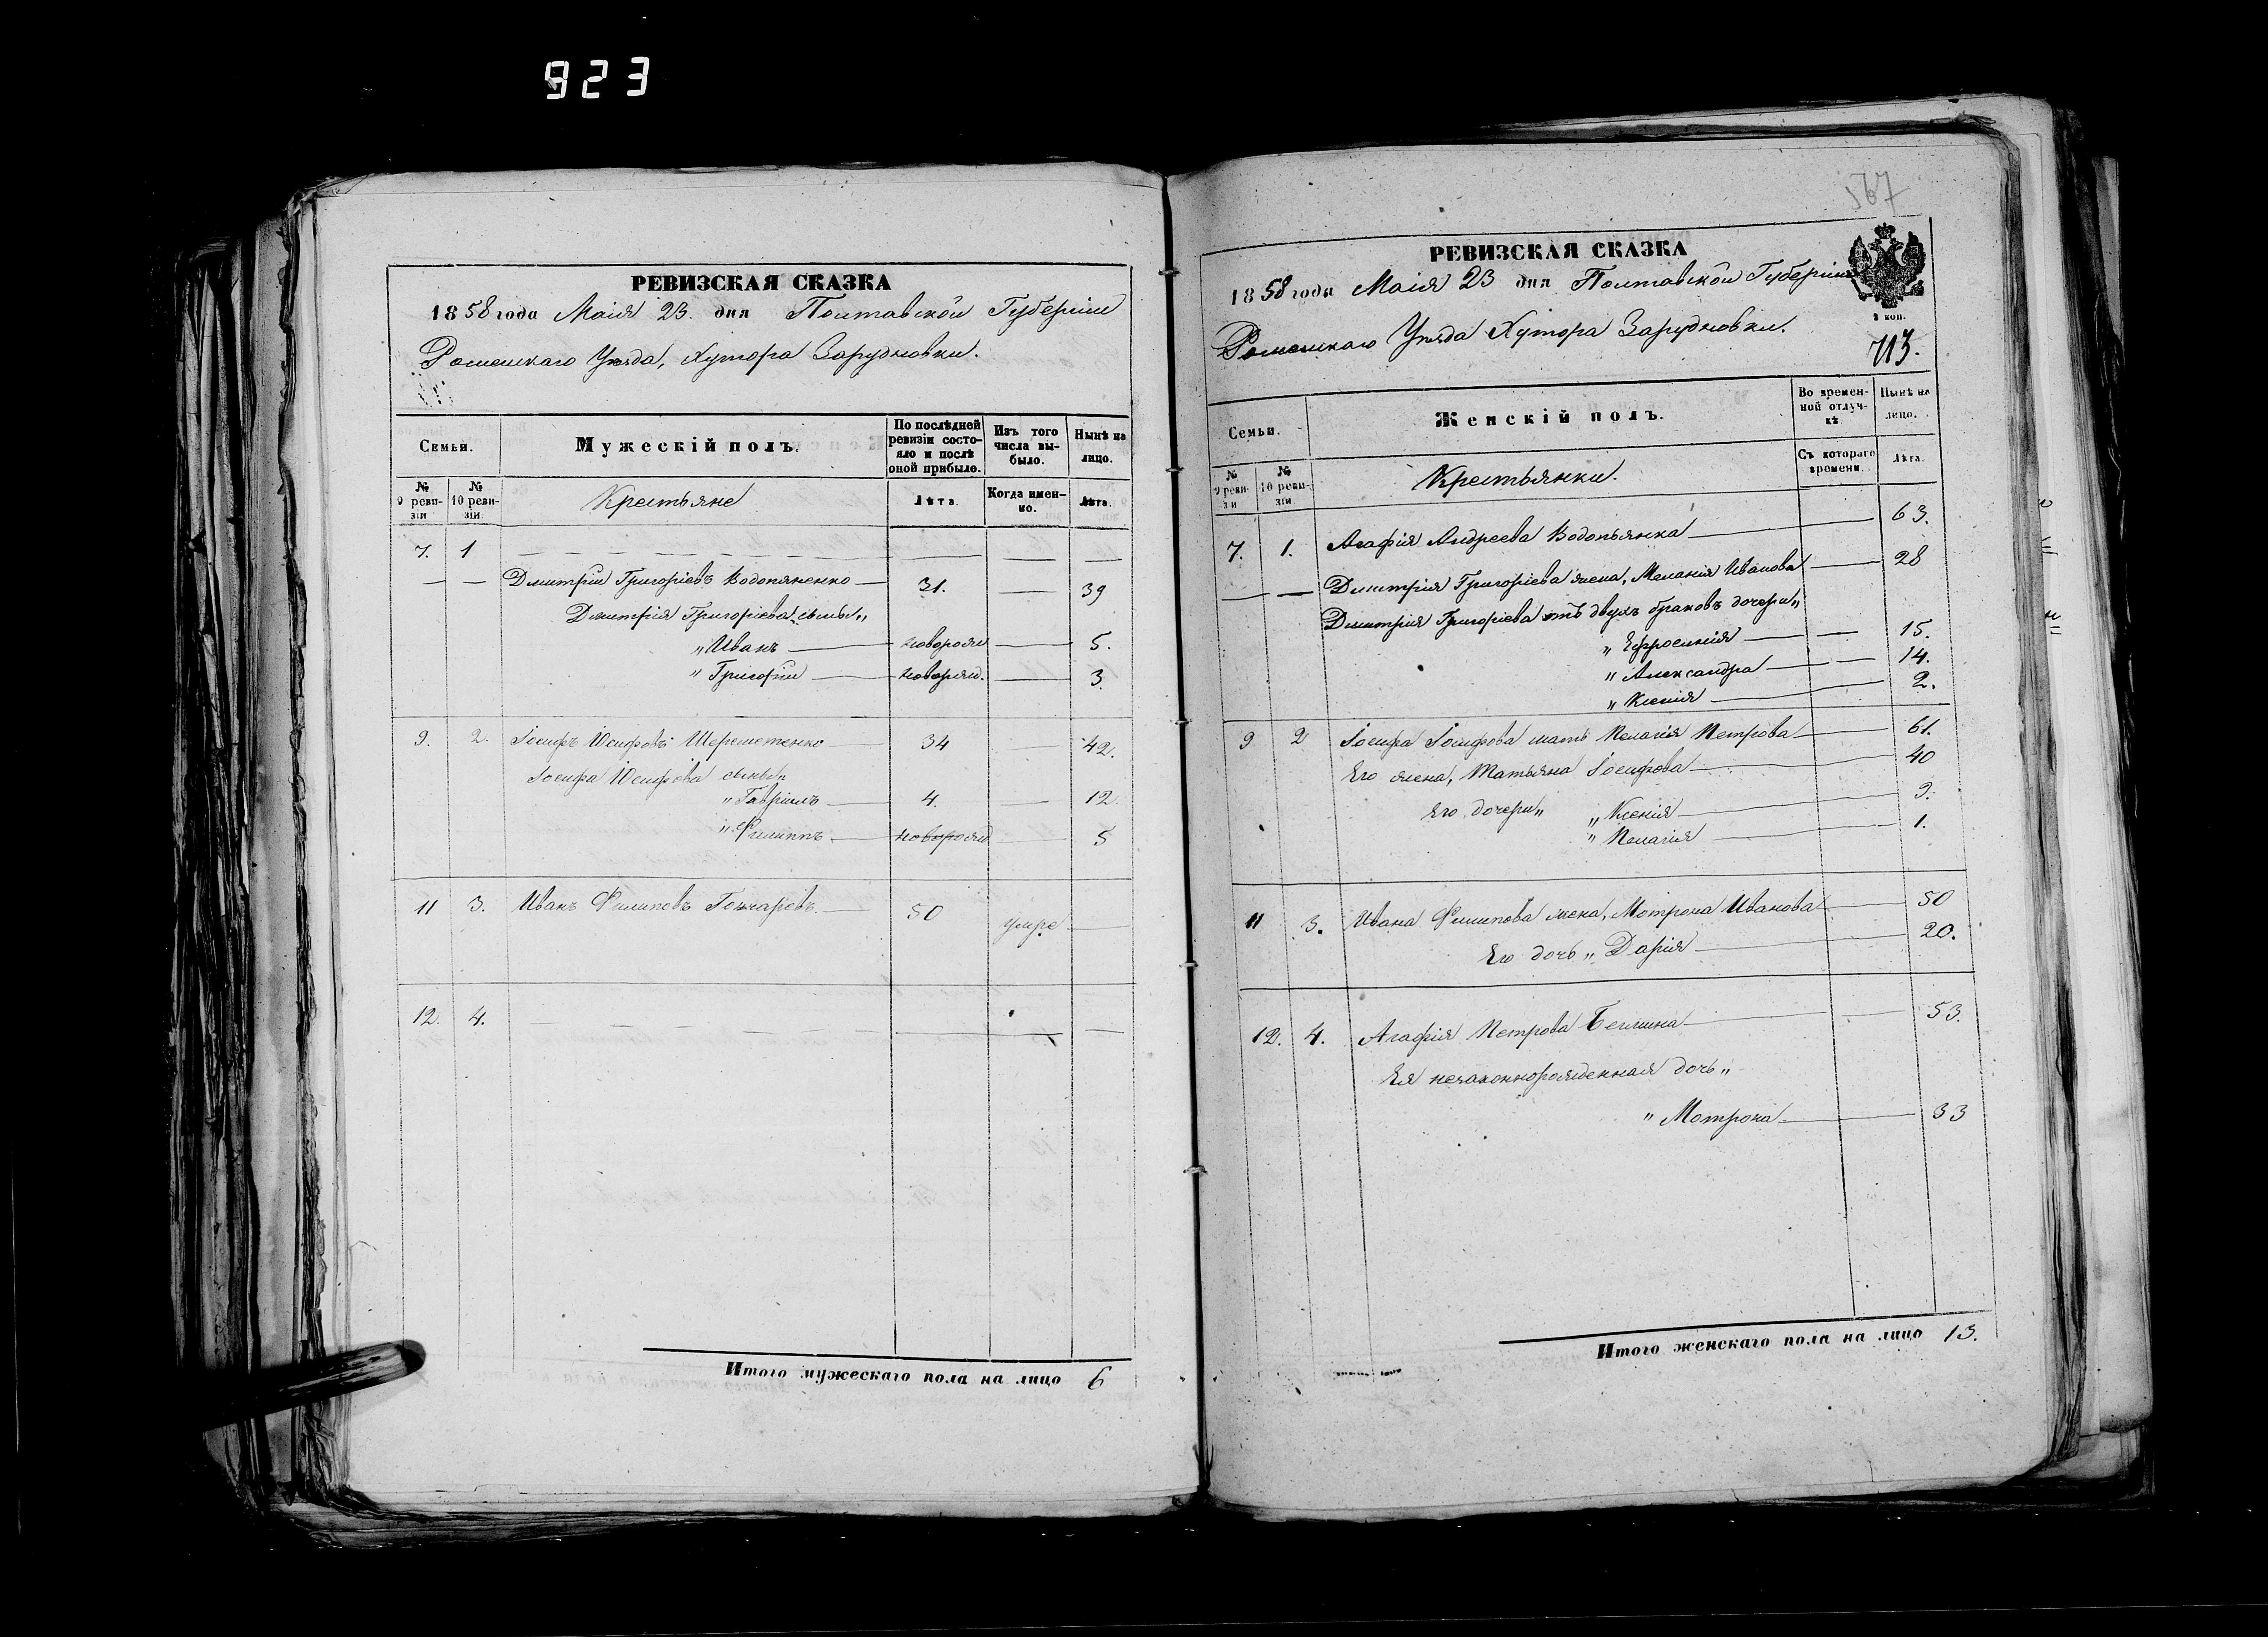 923
РЕВИЗСКАЯ СКАЗКА
1858 года Маія 23. дня Полтавской Губерніи
Роменскаго Уѣзда, Хутора Зарудновки.
Семьи.
Мужескій полъ.
По послѣдней ревизіи состояло и послѣ оной прибыло.
Изъ того числа выбыло.
Нынѣ на лицо.
№ 9 ревизіи
№ 10 ревизіи
Крестьяне
Лѣта.
Когда именно.
Лѣта.
7. 1 — — — — — — —
— — Дмитрій Григоріевъ Водопяненко — 31. — 39
Дмитрія Григоріева сыны „
„ Иванъ — новорожд — 5.
„ Григорій — новорожд. — 3.
9. 2. Іосифъ Юсифовъ Шереметенко — 34 — 42.
Іосифа Юсифова сыны „
„ Гавріилъ — 4. — 12
„ Филиппъ — новорожд — 5
11 3. Иванъ Филиповъ Гончаревъ — 50 умре —
12. 4. — — — — — — —
Итого мужескаго пола на лицо 6
567
РЕВИЗСКАЯ СКАЗКА
1858 года Маія 23 дня Полтавской Губерніи
3 коп.
Роменскаго Уѣзда Хутора Зарудновки.
713.
Семьи.
Женскій полъ.
Во временной отлучкѣ
Нынѣ на лицо.
№ 9 ревизіи
№ 10 ревизіи
Крестьянки.
Съ котораго времени.
Лѣта.
7. 1. Агафія Андреева Водопьянка — — 63.
— — Дмитрія Григоріева жена, Меланія Иванова — 28
Дмитрія Григоріева отъ двухъ браковъ дочери „
„ Ефросинія — — 15.
„ Александра — — 14.
„ Ксенія — 2.
9 2 Іосифа Іосифова мать Пелагія Петрова — 61.
Его жена, Татьяна Іосифова — 40
Его дочери „ „ Ксенія — 9.
„ Пелагія — 1.
11 3. Ивана Филипова жена, Мотрона Иванова — 50
Его дочь „ Дарія — 20.
12. 4. Агафія Петрова — — 53.
Ея незаконнорожденная дочь „
„ Мотрона — 33
Итого женскаго пола на лицо 13.